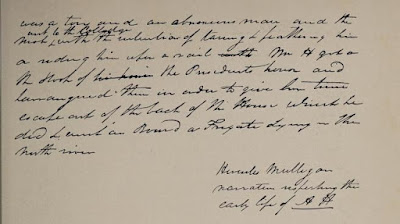 was a tory and an obnoxious man and the
went to the College
mob, with the intention of taring & feathering him
or riding him upon a rail Mr H got on
the stoop of his house the Presidents house and
harrangued them in order to give him time
escape out of the back of the House which he
did & went on Board a Frigate lying in the
North river
Hercules Mulligan
narrative respecting the
early life of A H